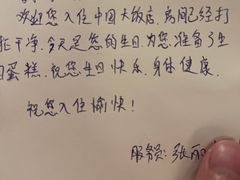 欢迎您入住中国大饭店,房间已经打
扫干净,今天是您的生日,为您准备了生
日蛋糕,祝您生日快乐,身体健康,
祝您入住愉快!
服务员:张丽